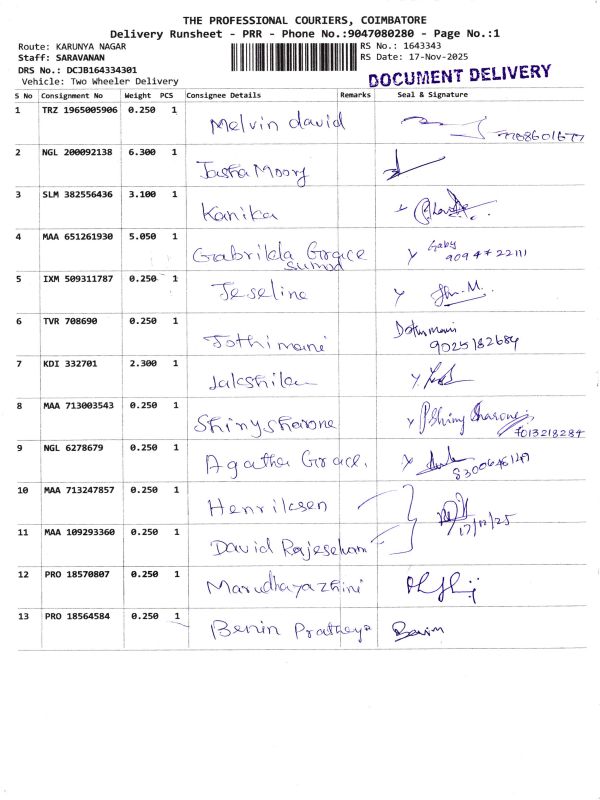 THE PROFESSIONAL COURIERS, COIMBATORE
Delivery Runsheet - PRR - Phone No.:9047080280 - Page No.:1
Route: KARUNYA NAGAR
RS No.: 1643343
Staff: SARAVANAN
RS Date: 17-Nov-2025
DRS No.: DCJB164334301
Vehicle: Two Wheeler Delivery
DOCUMENT DELIVERY
S No Consignment No Weight PCS Consignee Details Remarks Seal & Signature
1 TRZ 1965005906 0.250 1 Melvin david
2 NGL 200092138 6.300 1
3 SLM 382556436 3.100 1 Kanika
4 MAA 651261930 5.050 1 Gabrilda Grace Gaby
5 IXM 509311787 0.250 1 Jeseline
6 TVR 708690 0.250 1 Jothimani
9025182684
7 KDI 332701 2.300 1
8 MAA 713003543 0.250 1 Shinysharone Shiny Sharone
7013218284
9 NGL 6278679 0.250 1 Agatha Grace.
10 MAA 713247857 0.250 1 Henriksen
17/11/25
11 MAA 109293360 0.250 1 David
12 PRO 18570807 0.250 1 Marudhayazhini
13 PRO 18564584 0.250 1 Benin